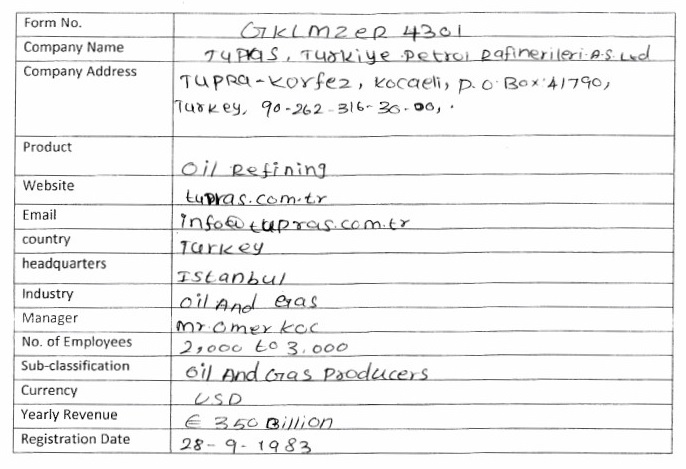 Form No. GKLMZER 4301
Company Name TUPRAS, Turkiye Petrol Rafinerileri A.S. Ltd
Company Address TUPRA-Korfez, Kocaeli, P.O.Box 41790,
Turkey, 90-262-316-30-00, .
Product Oil Refining
Website tupras.com.tr
Email info@tupras.com.tr
country Turkey
headquarters Istanbul
Industry Oil And Gas
Manager Mr. Omer Koc
No. of Employees 2,000 to 3.000
Sub-classification Oil And Gas Producers
Currency USD
Yearly Revenue € 350 Billion
Registration Date 28-9-1983